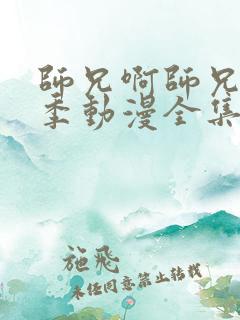 師兄啊師兄
季動漫全集
施飛
未经同意禁止转载